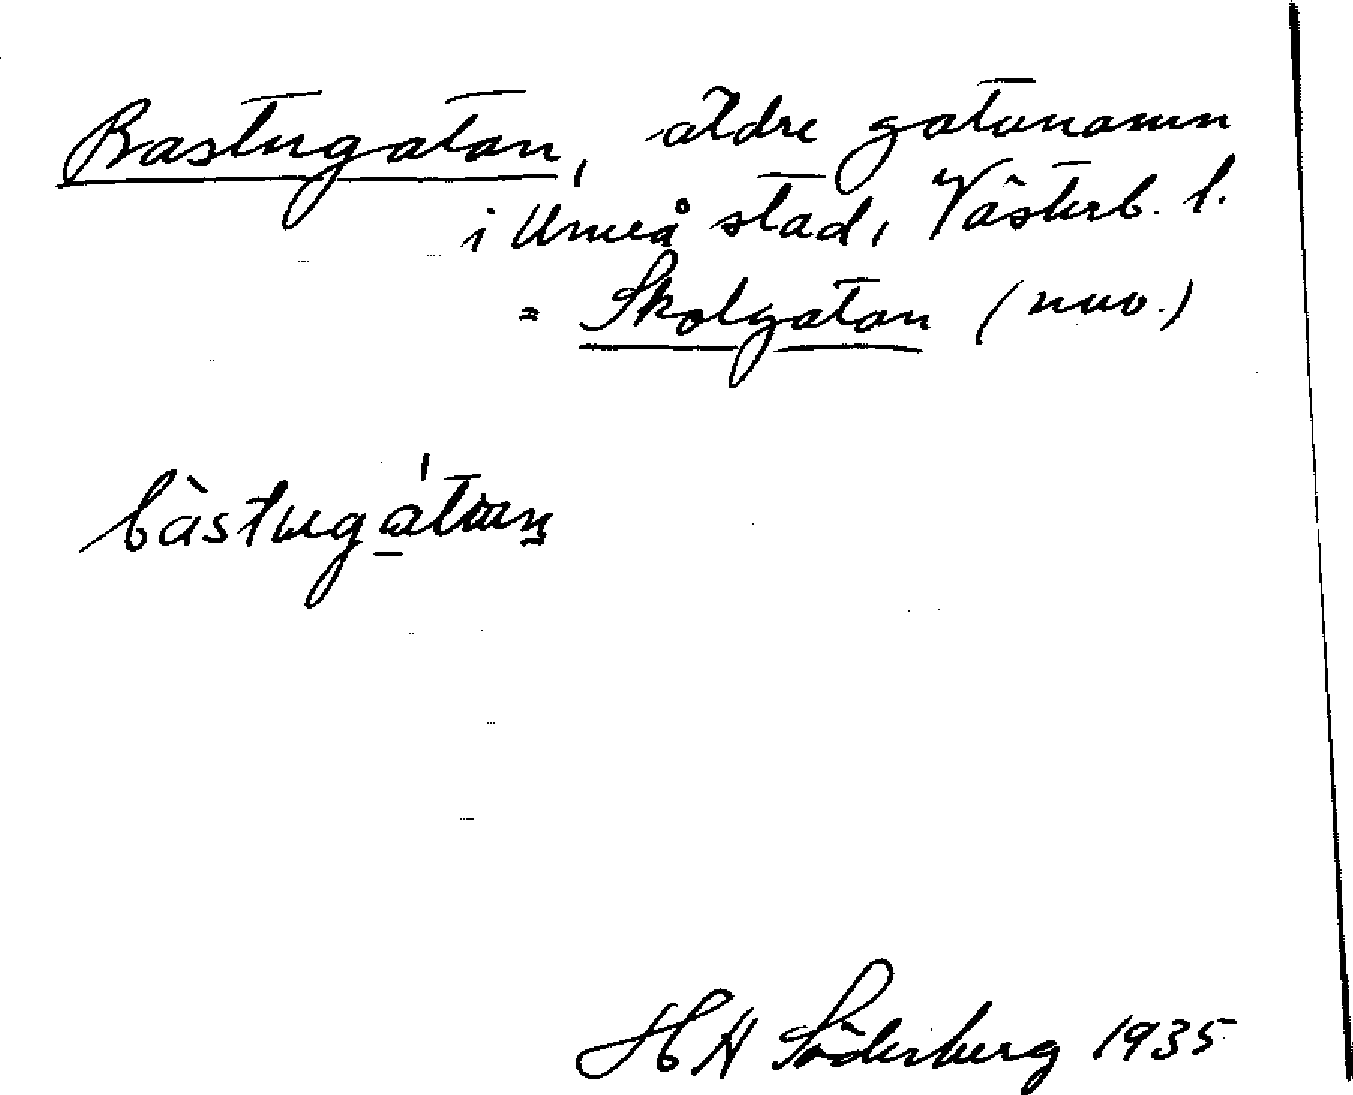 Bastugatan, äldre gatunamn
i Umeå stad, Västerb. l.
= Skolgatan (nuv.)
HH Söderberg 1935